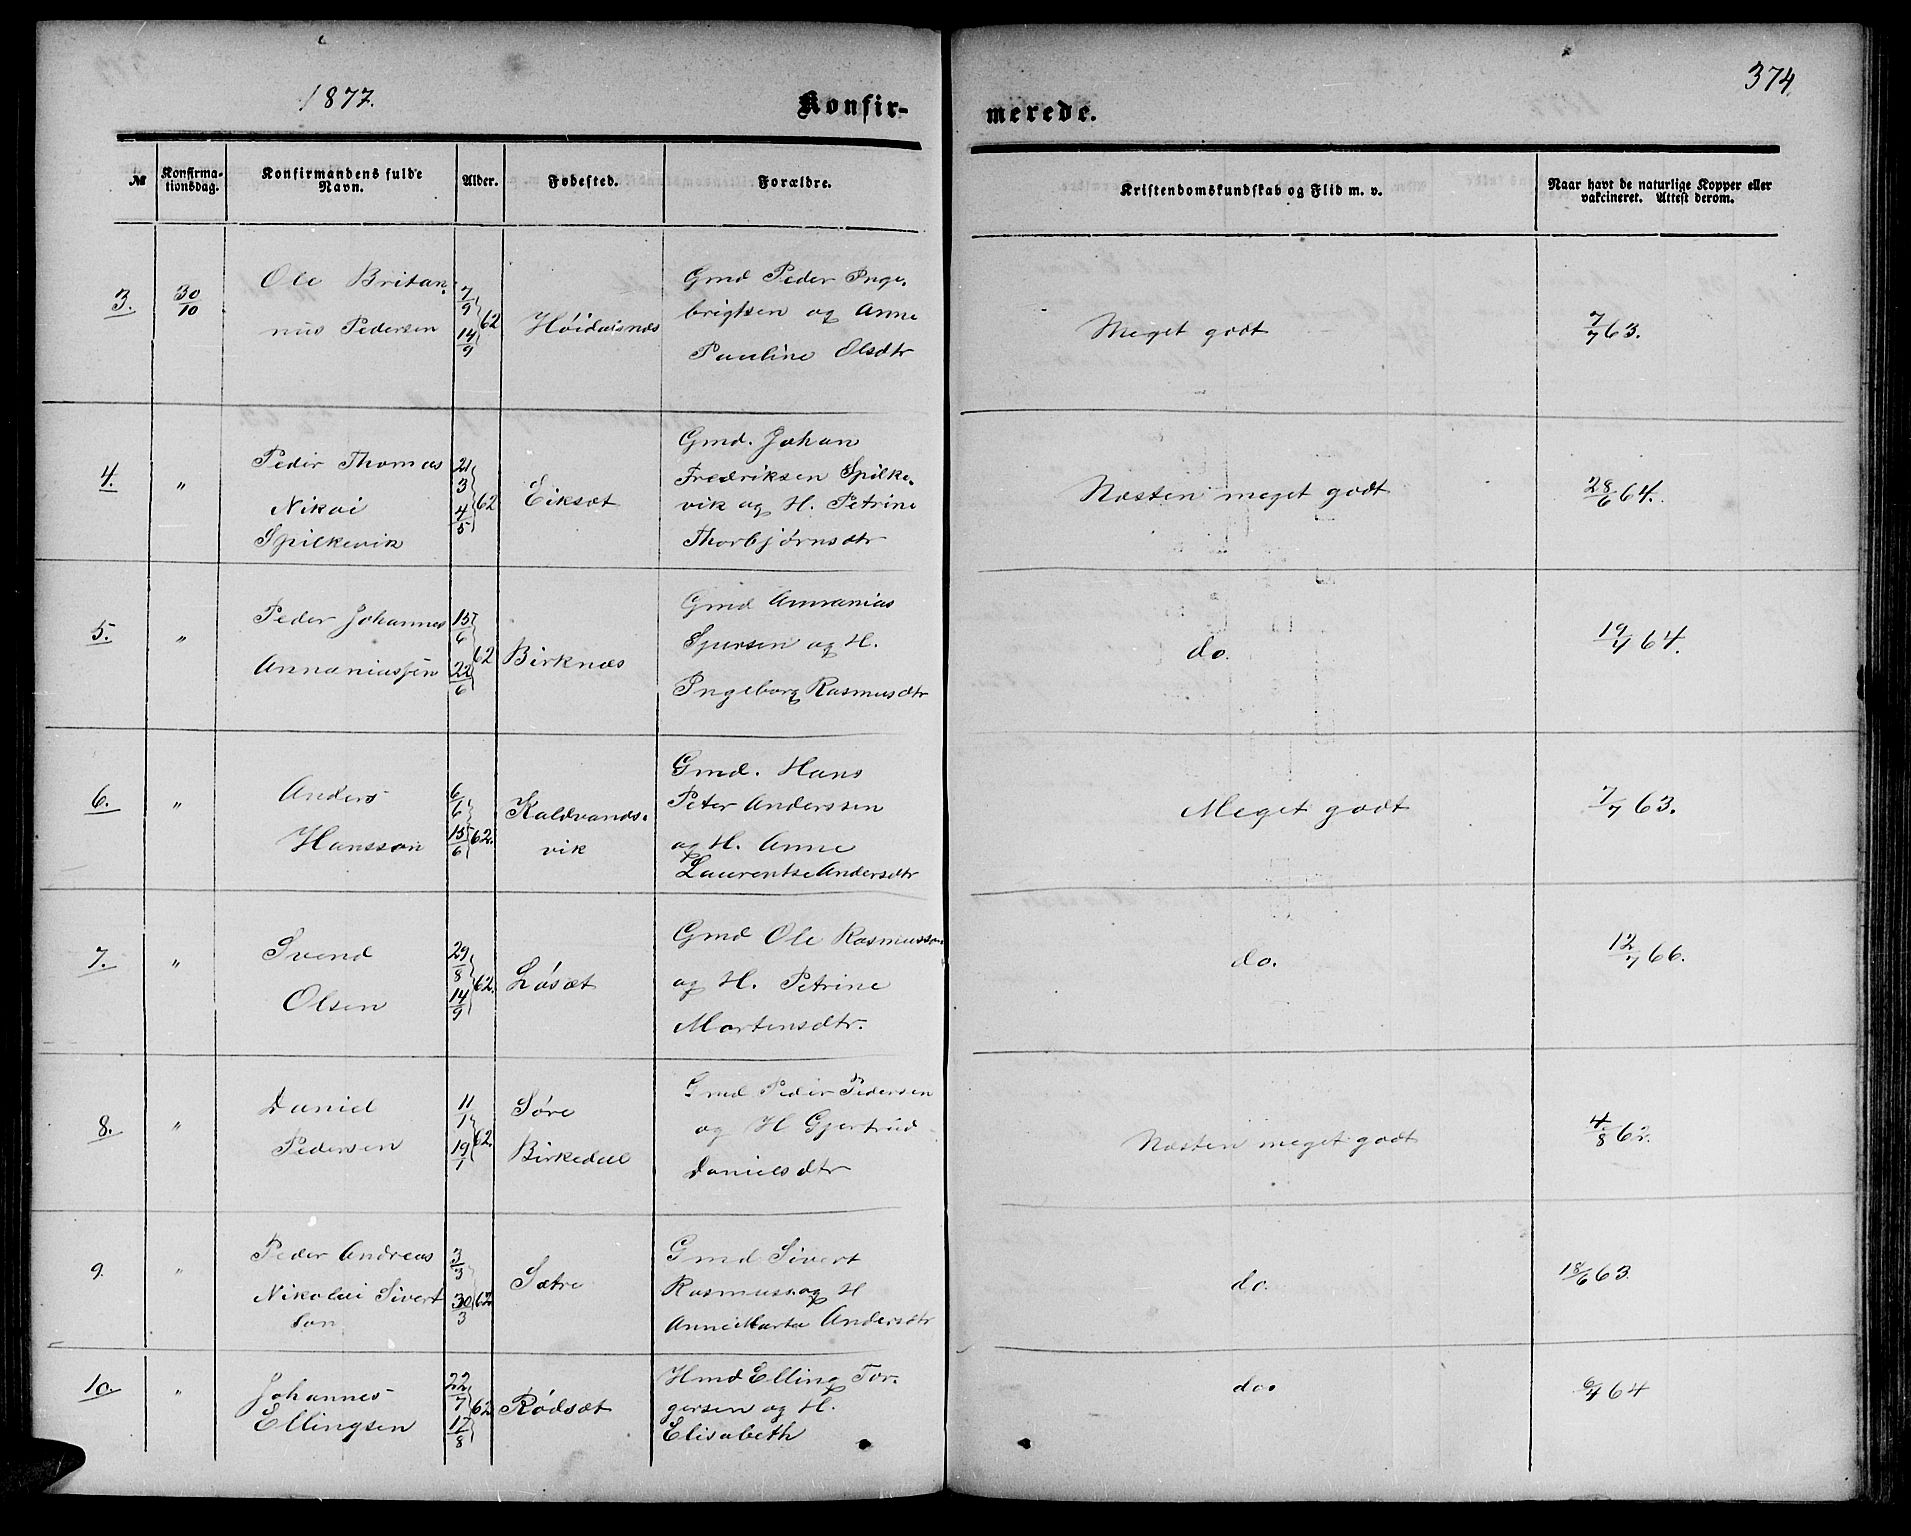 1877.
Konfir-
merede.
374.
№
Konfirma-
tionsdag.
Konfirmandens fulde
Navn.
Alder.
Fødested.
Forældre.
Kristendomskundskab og Flid m. v.
Naar havt de naturlige Kopper eller
vakcineret. Attest derom.
3.
30/10
Ole Britan-
nus Pedersen
7/9 14/9 62
Høidalsnæs
Gmd Peder Inge-
brigtsen og Anne
Pauline Olsdtr
Meget godt
7/7 63.
4.
"
Peder Thomas
Nikai
Spilkevik
21/3 4/5 62
Eiksæt
Gmd. Johan
Fredriksen Spilke-
vik og H. Petrine
Thorbjørnsdtr
Næsten meget godt
28/6 64.
5.
"
Peder Johannes
Annaniassen
15/6 22/6 62
Birknæs
Gmd Annanias
Sjursen og H.
Ingeborg Rasmusdtr
do.
19/4 64.
6.
"
Anders
Hansson
6/6 15/6 62.
Kaldvands-
vik
Gmd. Hans
Peter Anderssen
og H. Anne
Laurentse Andersdtr
Meget godt
7/7 63.
7.
"
Svend
Olsen
29/8 14/9 62.
Løsæt
Gmd Ole Rasmussen
og H. Petrine
Martinsdtr.
do.
12/7 66.
8.
"
Daniel
Pedersen
11/1 19/1 62.
Søre
Birkedal
Gmd Peder Pedersen
og H Gjertrud
Danielsdtr
Næsten meget godt
4/8 62.
9.
"
Peder Andreas
Nikolai Sivert
son
3/3 30/3 62.
Sætre
Gmd Sivert
Rasmuss. og H
Anne Marta Andersdtr
do.
18/6 63.
10.
"
Johannes
Ellingsen
22/7 17/8 62
Rødsæt
Hmd Elling Tor-
gersen og H.
Elisabeth
do.
6/4 64